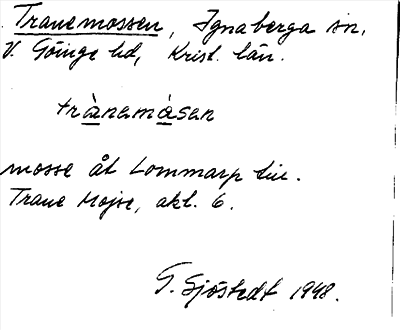 Tranemossen, Ignaberga sn.
V. Göinge hd, Krist. län.
trànamàsen
mosse åt Lommarp till.
Trane Mojse, akt. 6.
G. Sjöstedt 1948.